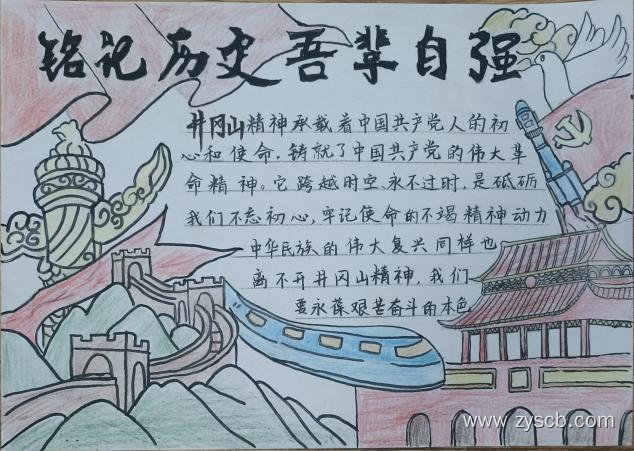 铭记历史吾辈自强
井冈山精神承载着中国共产党人的初
心和使命，铸就了中国共产党的伟大革
命精神。它跨越时空、永不过时，是砥砺
我们不忘初心，牢记使命的不竭精神动力
中华民族的伟大复兴同样也
离不开井冈山精神，我们
要永葆艰苦奋斗的本色
www.zyscb.com